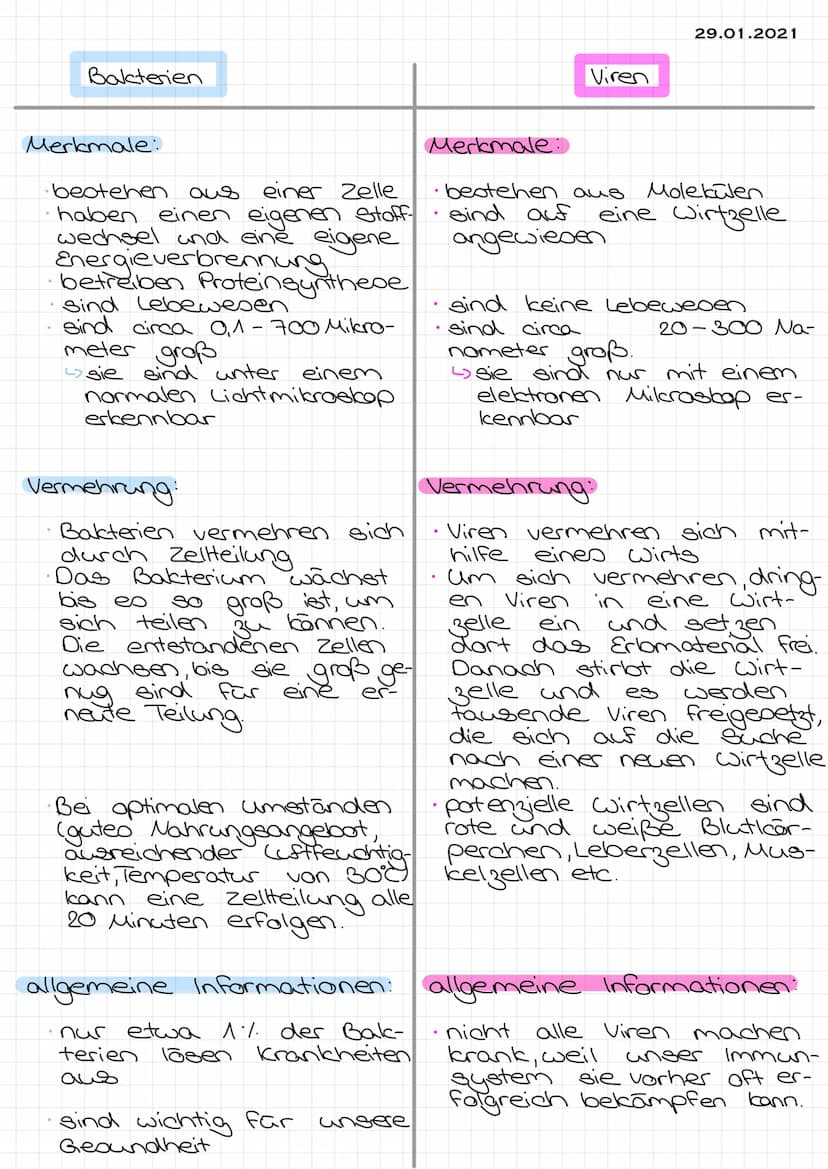 29.01.2021
Bakterien
Merkmale:
· bestehen aus einer Zelle
· haben einen eigenen Stoff-
wechsel und eine eigene
Energieverbrennung
· betreiben Proteinsynthese
· sind Lebewesen
· sind circa 0,1 - 700 Mikro-
meter groß
↳ sie sind unter einem
normalen Lichtmikroskop
erkennbar
Vermehrung:
· Bakterien vermehren sich
durch Zellteilung
· Das Bakterium wächst
bis es so groß ist, um
sich teilen zu können.
Die entstandenen Zellen
wachsen, bis sie groß ge-
nug sind für eine er-
neute Teilung.
· Bei optimalen Umständen
(gutes Nahrungsangebot,
ausreichender Luftfeuchtig-
keit, Temperatur von 30°C)
kann eine Zellteilung alle
20 Minuten erfolgen.
allgemeine Informationen:
· nur etwa 1% der Bak-
terien lösen Krankheiten
aus
· sind wichtig für unsere
Gesundheit
Viren
Merkmale:
· bestehen aus Molekülen
· sind auf eine Wirtzelle
angewiesen
· sind keine Lebewesen
· sind circa 20 - 300 Na-
nometer groß.
↳ sie sind nur mit einem
elektronen Mikroskop er-
kennbar
Vermehrung:
· Viren vermehren sich mit-
hilfe eines Wirts
· Um sich vermehren, dring-
en Viren in eine Wirt-
zelle ein und setzen
dort das Erbmaterial frei.
Danach stirbt die Wirt-
zelle und es werden
tausende Viren freigesetzt,
die sich auf die Suche
nach einer neuen Wirtzelle
machen.
· potenzielle Wirtzellen sind
rote und weiße Blutkör-
perchen, Leberzellen, Mus-
kelzellen etc.
allgemeine Informationen:
· nicht alle Viren machen
krank, weil unser Immun-
system sie vorher oft er-
folgreich bekämpfen kann.